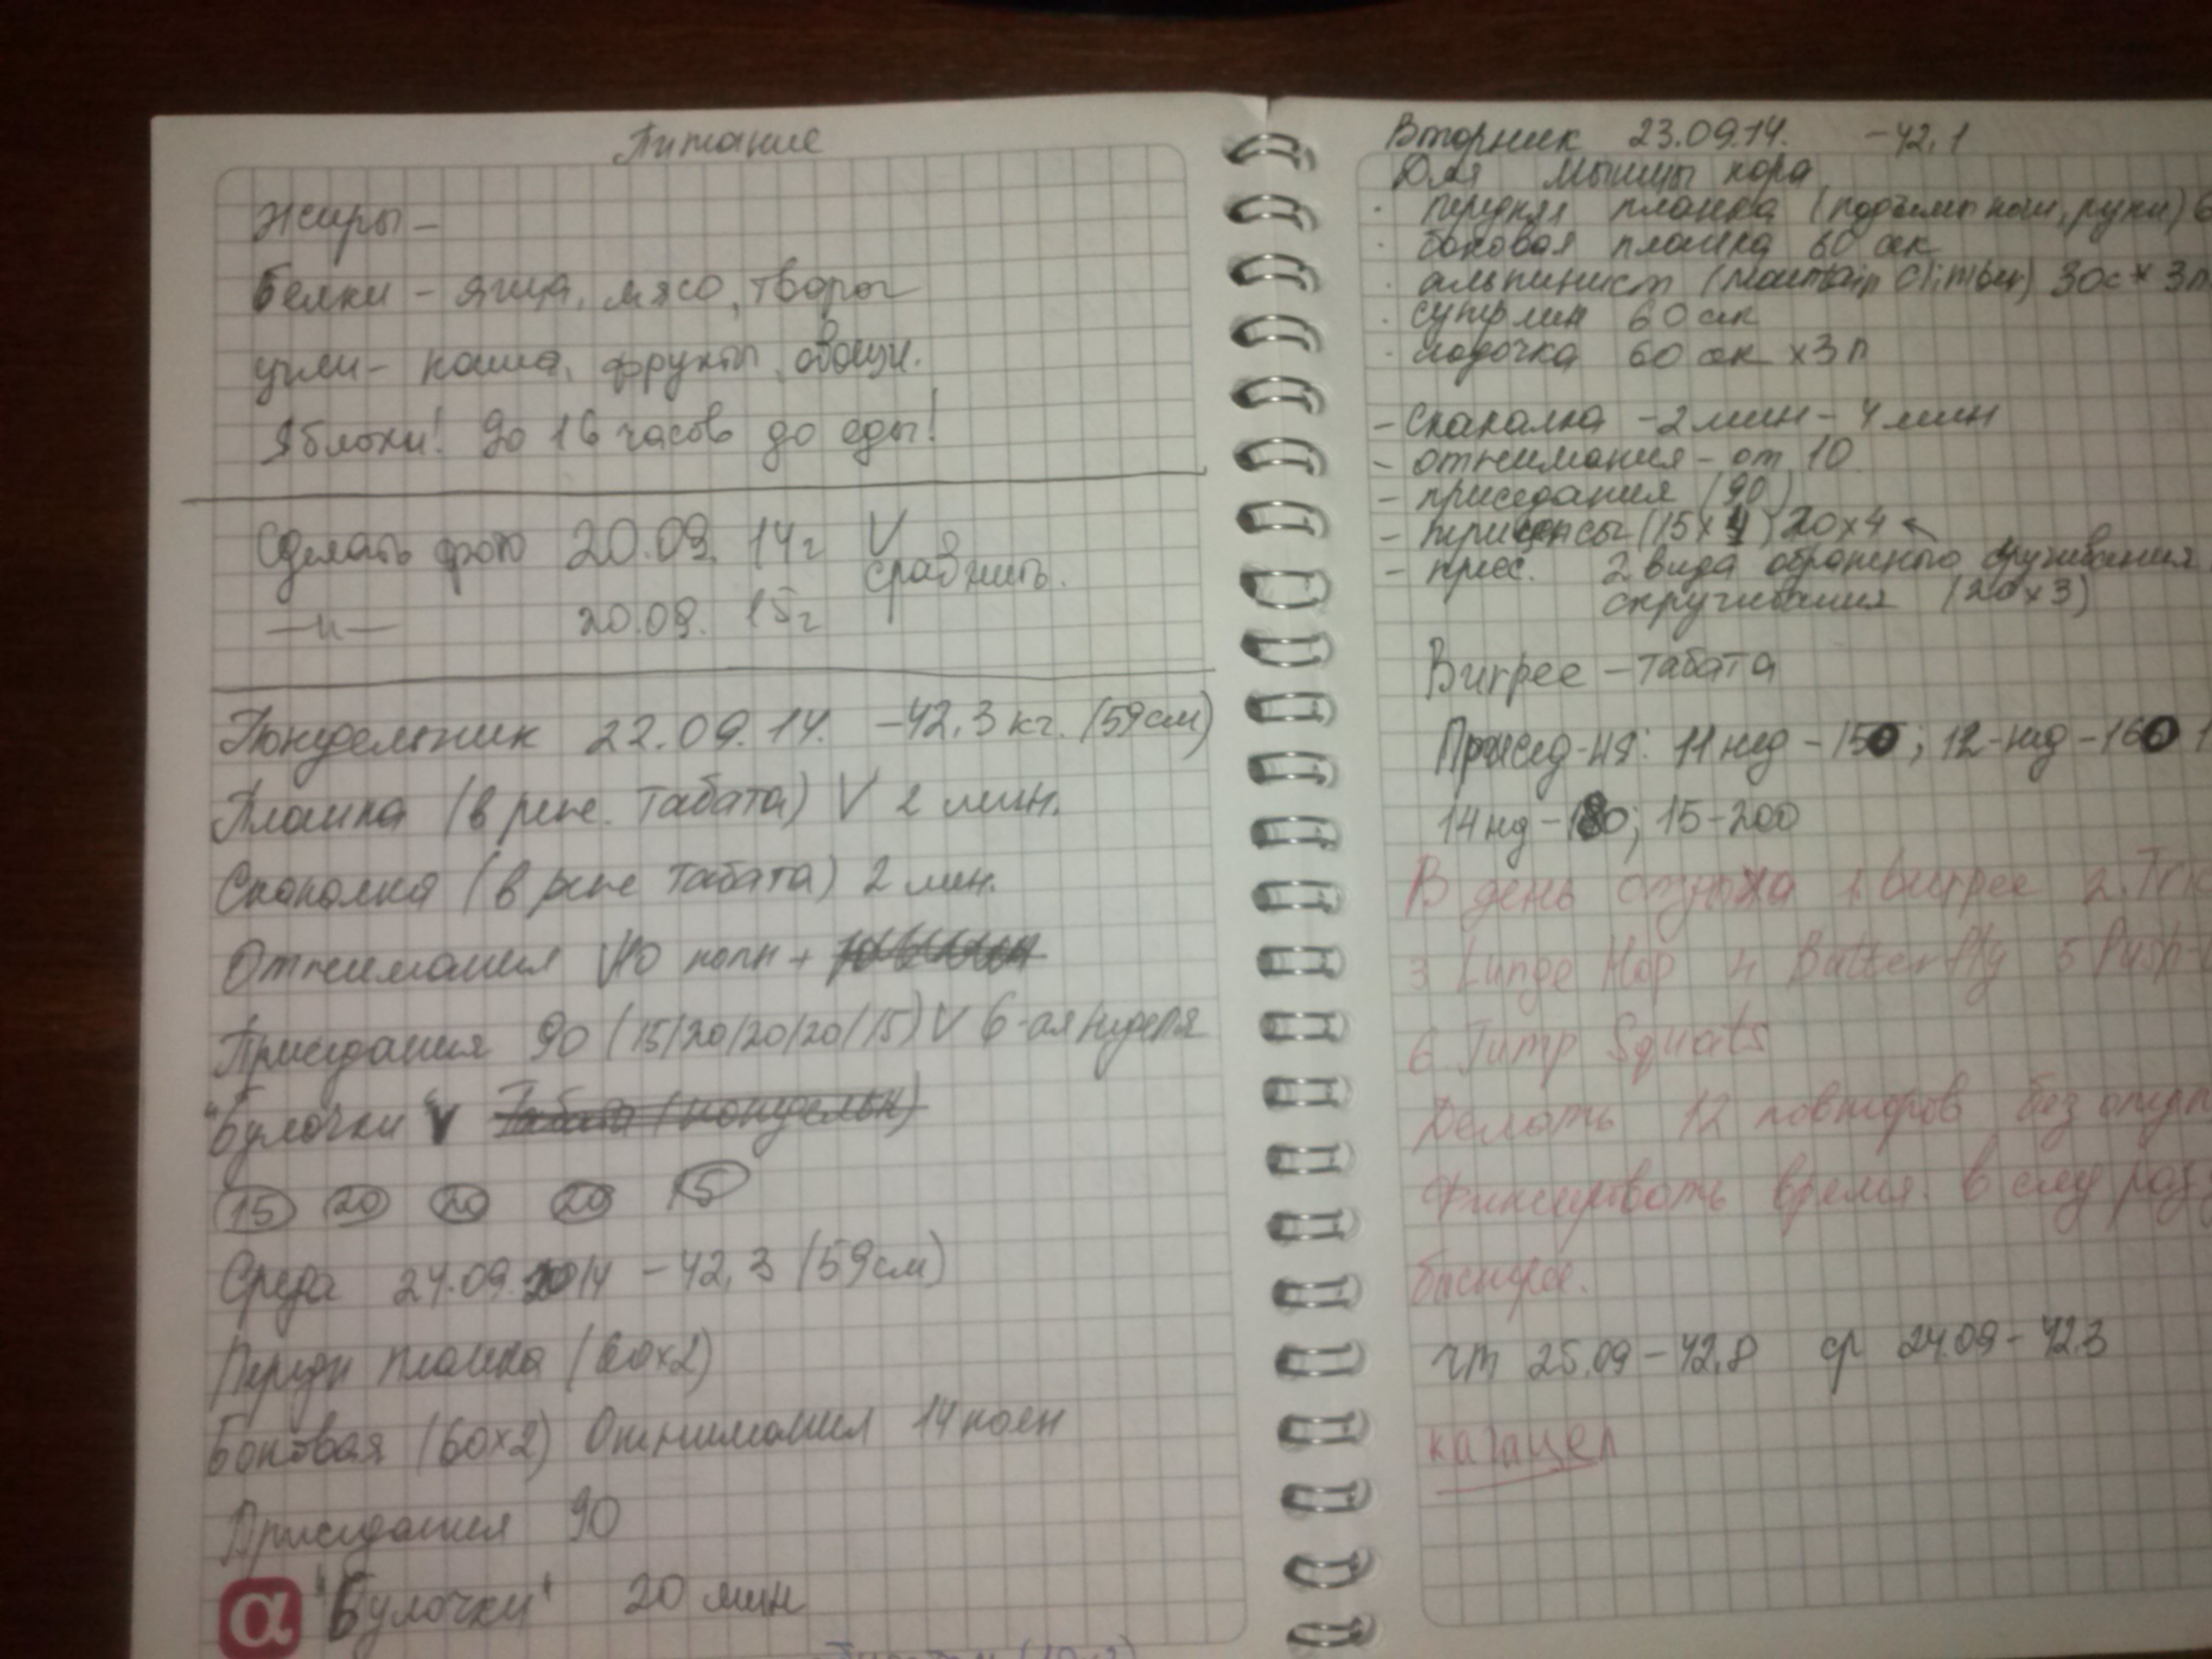 Питание
Жиры –
Белки – яйца, мясо, творог
угли – каша, фрукты, овощи.
Яблоки! До 16 часов до еды!
Сделать фото 20.09. 14г V
сравнить.
—и— 20.09. 15г
Понедельник 22.09.14. –42,3 кг. (59см)
Планка (в реж. Табата) V 2 мин.
Скакалка (в реж Табата) 2 мин.
Отжимания V 10 колн +
Приседания 90 (15/20/20/20/15) V 6-ая неделя
"Булочки" V Табата (понедельн)
15 20 20 20 15
Среда 24.09.2014 – 42,3 (59см)
Передн планка (60х2)
Боковая (60х2) Отжимания 14 колен
Приседания 90
α "Булочки" 20 мин
Вторник 23.09.14. –42,1
Для мышцы кора
· передняя планка (подъемы ног, руки) 6
· боковая планка 60 сек
· альпинист (Mountain Climber) 30с × 3п
· супермен 60 сек
· лодочка 60 сек х3п
– Скакалка – 2 мин – 4 мин
– отжимания – от 10
– приседания (90)
– трицепсы (15х4) 20х4
– пресс. 2 вида обратного скручивания
скручивания (20х3)
Burpee – табата
Присед-ия: 11 нед – 150; 12-нед – 160 1
14 нд – 180; 15-200
В день отдыха 1. burpee 2. Tric
3 Lunge Hop 4 Butterfly 5 Push-
6. Jump Squats
Делать 12 повторов без
Фиксировать время. в след раз
быстрее.
чт 25.09 – 42,8 ср 24.09 – 42,3
кагацел